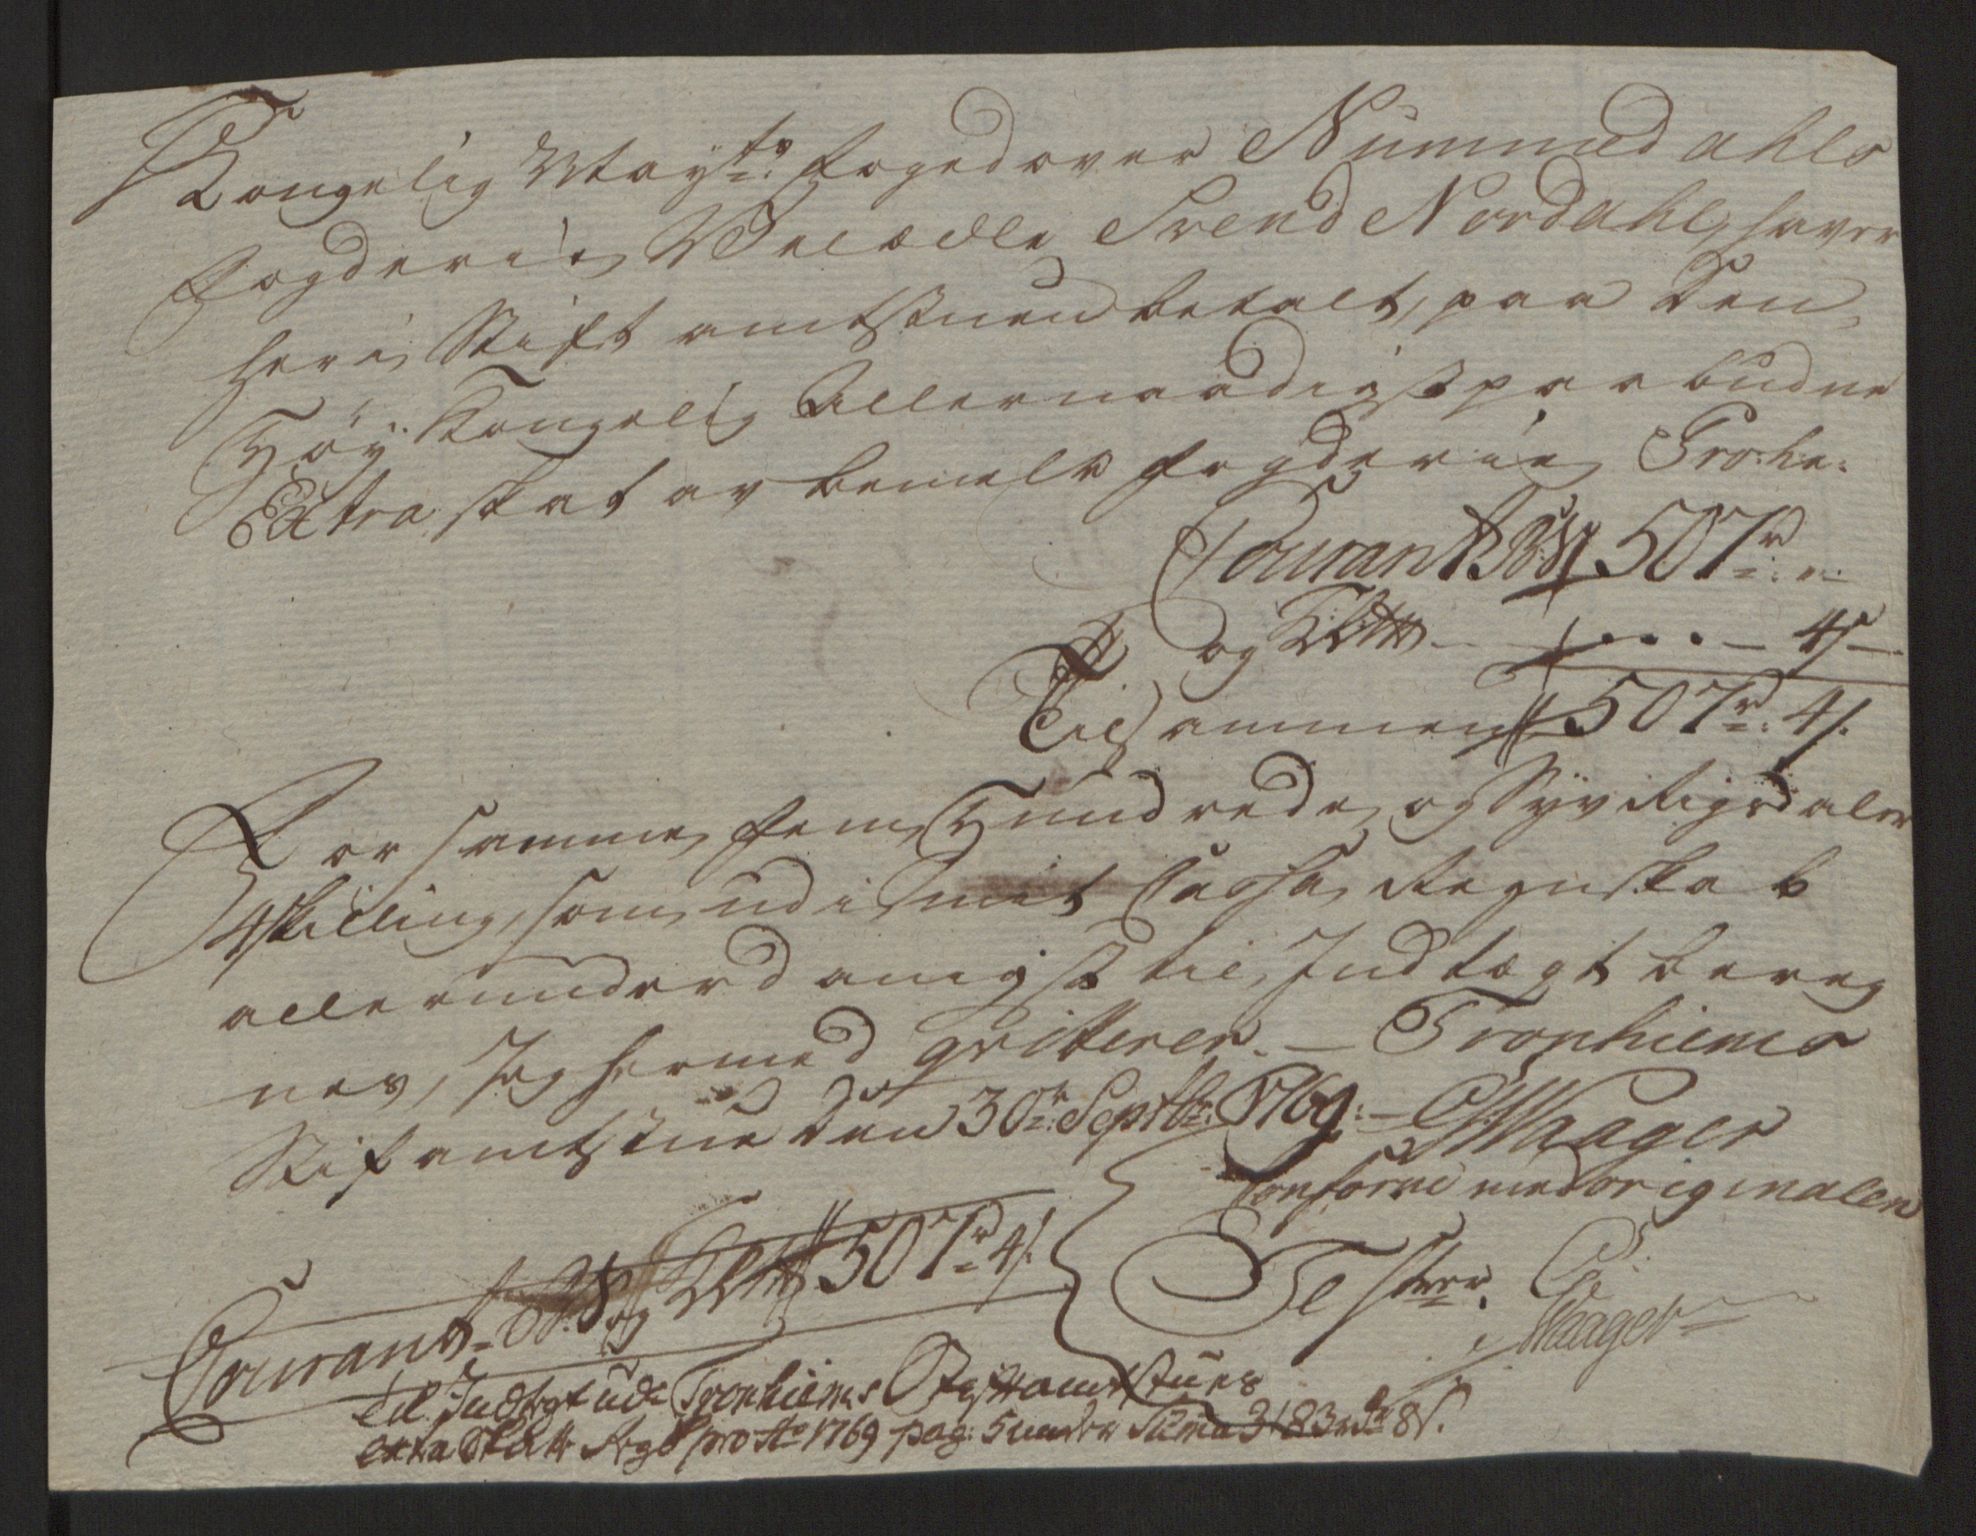 Kongelig Mayts: Foged over Nummedahls
Fogderie, Velædle Svend Nordahl, haver
her i Stift amtstuen betalt, paa den,
Høy Kongelig Allernaadigst paabudne
Extra skat av bemelte Fogderie Pro:
Courant 507 rd: "
og - - - - 4 s
Tilsammen 507 rd: 4 s.
For samme fem Hundrede og Syv Rigsdaler
4 skilling, som udi mit Cassa Regnskab
allerunderdanigst til Indtægt bereg
nes, Jeg hermed qvitterer. – Tronhiems
Stiftamtstue den 30te Septbr: 1769. – Waager
Conform med originalen
Courant og 507 rd 4 s.
Testerer
Waager
Til Indtægt udi Tronhiems Stiftamtstues
extra Skatte Regsk: pro Ao 1769 pag: 5 under Suma 3183 rd 8 s.